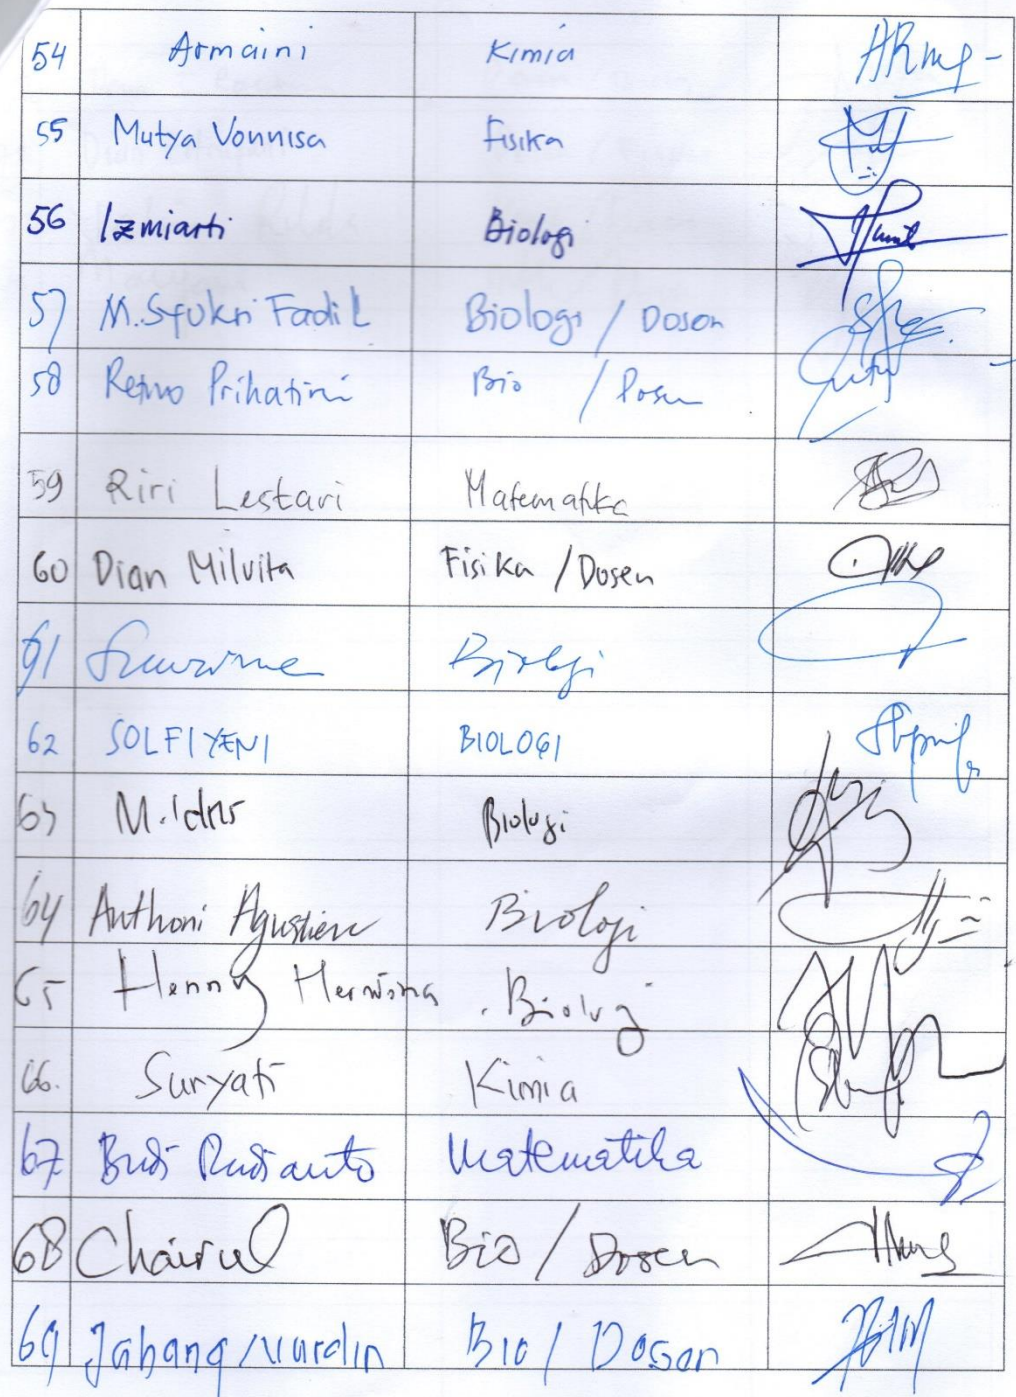 54 Armaini Kimia
55 Mutya Vonnisa Fisika
56 Izmiarti Biologi
57 M. Syukri Fadil Biologi / Dosen
58 Retno Prihatini Bio / Dosen
59 Riri Lestari Matematika
60 Dian Milvita Fisika / Dosen
61 Biologi
62 SOLFIYENI BIOLOGI
63 M. Idris Biologi
64 Anthoni Agustien Biologi
65 Henny Herwina Biologi
66. Suryati Kimia
67 Budi Rudianto Matematika
68 Chairul Bio / Dosen
69 Jabang Nurdin Bio / Dosen